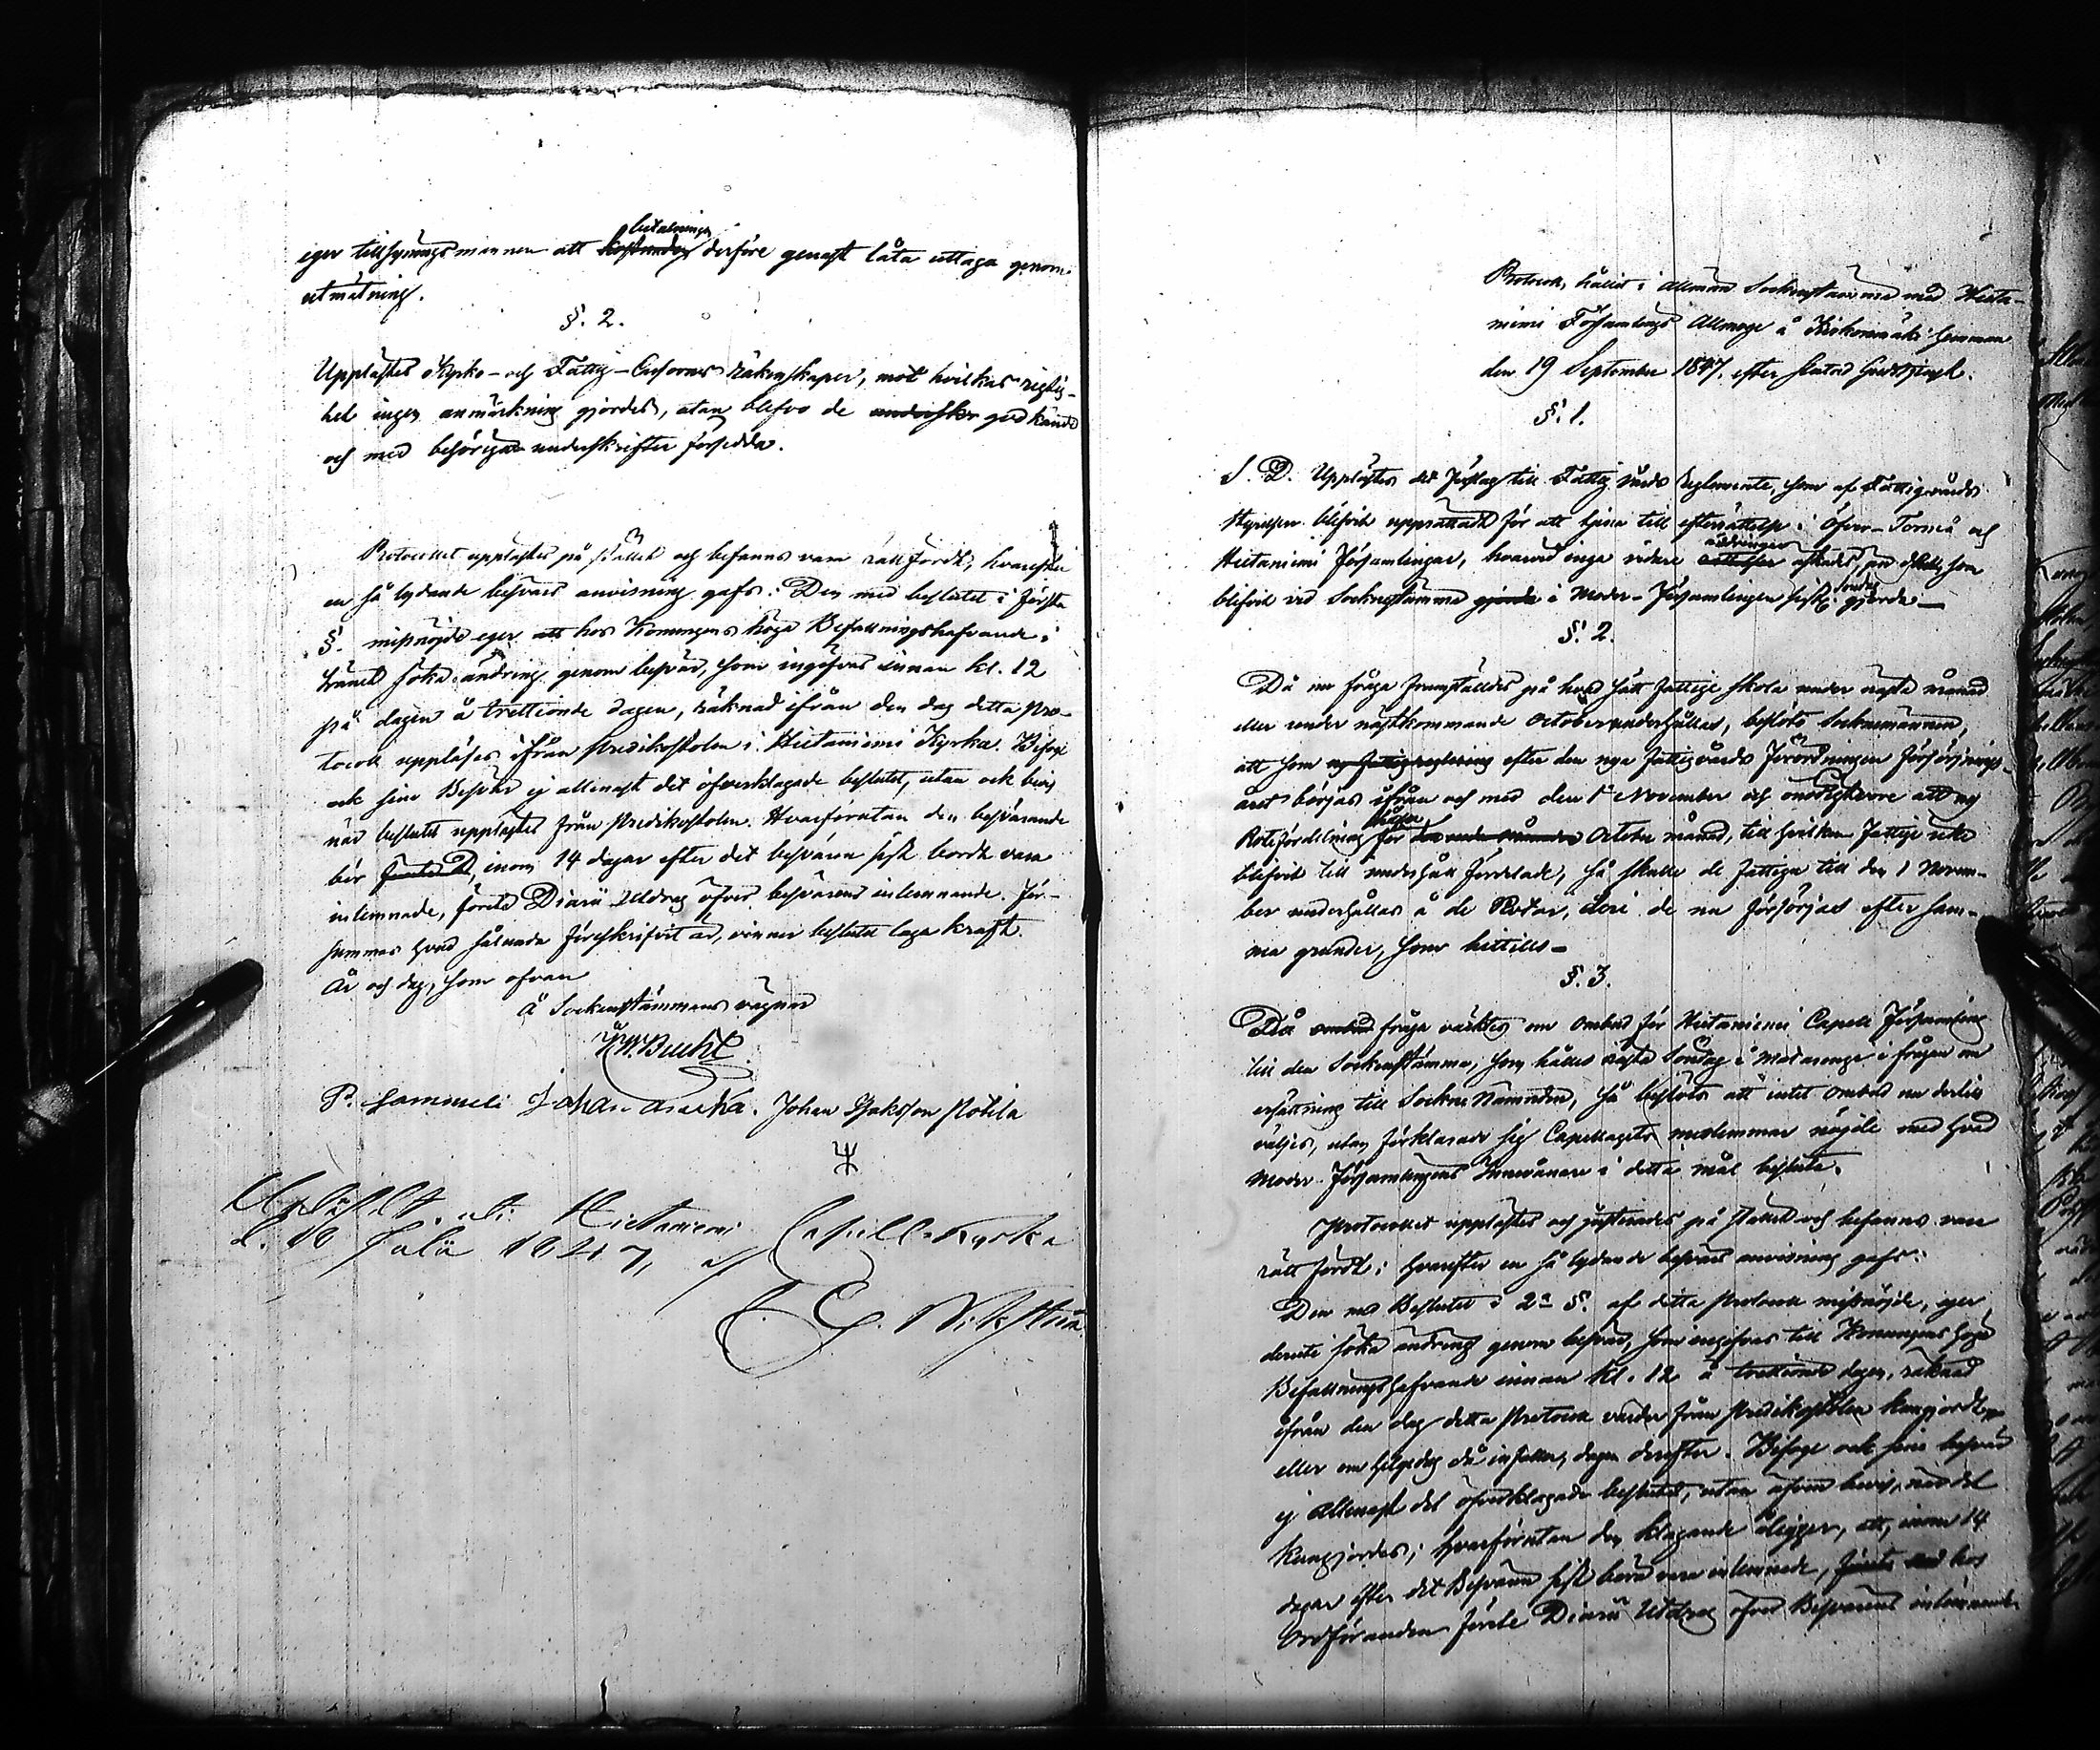 betalningen
eger tillsyningsmannen att kostnaden derföre genast låta uttaga genom
utmätning.
§. 2.
Upplästes Kyrko- och Fattig-Cassornes räkenskaper, mot hvilkas rigtig-
het ingen anmärkning gjordes, utan blefvo de godkände
och med behöriga underskrifter försedda.
Protocollet upplästes på stället och befanns vara rätt fördt, hvarefter
en så lydande besvärs anvisning gafs: Den med beslutet i första
§. missnöjde eger att hos Konungens höga Befallningshafvande i
Länet söka ändring genom besvär, som ingifvas innan kl. 12
på dagen å trettionde dagen, räknad ifrån den dag detta Pro-
tocoll uppläses ifrån Predikostolen i Hietaniemi Kyrka. Bifoge
ock sine Besvär ej allenast det öfverklagade beslutet, utan ock bevis
när beslutet upplästes från Predikostolen. Hvarförutan den besvärande
bör, inom 14 dagar efter det besvären sist bordt vara
inlemnade, förete Diarii Utdrag öfver besvärens inlemnande. För-
summas hvad sålunda föreskrifvit är, vinner beslutet laga kraft.
År och dag, som ofvan
Å Sockenstämmans vägnar
Bucht
P. Sammeli Johan Johan Isaksson Nötila
Uppläst uti Hietaniemi Capell-Kyrka
d. 18 Julii 1847, af
Wikström
Protocoll, hållit i allmän Sockenstämma med Hieta-
niemi Församlings Allmoge å Kirkomäki hemman
den 19 September 1847, efter slutad Gudstjenst.
§. 1.
S. D. Upplästes det förslag till Fattigvårds Reglemente, som af Fattigvårds
Styrelsen blifvit upprättadt för att tjena till efterrättelse i Öfver-Torneå och
ändringar
Hietaniemi Församlingar, hvarvid inga vidare äskades, än dhe, som
blifvit vid Sockenstämma gjorde i Moder-Församlingen sistl. Söndag gjorde—
§. 2.
Då nu fråga framställdes på hvad sätt fattige skola under nästa månad
eller under nästkommande October underhållas, beslöto Sockenmännen,
att som efter den nya Fattigvårds Förordningen Försörjnings-
året börjas ifrån och med den 1 November och att ny
Rotefördelning för October månad, till hvilken fattige icke
blifvit till underhåll fördelade, så skulle de fattige till den 1 Novem-
ber underhållas å de Rotar, deri de nu försörjas efter sam-
ma grunder, som hittills—
§. 3.
Då fråga väcktes om ombud för Hietaniemi Capell Församling
till den Sockenstämma, som hålles nästa Söndag i Matarengi i frågan om
ersättning till Sockne Nämnden, så beslöts att intet ombud nu dertill
väljes, utan förklarade sig Capellagets medlemmar nöjde med hvad
Moder-Församlingens Innevånare i detta mål besluta.
Protocollet upplästes och justerades på stället och befanns vara
rätt fördt; hvarefter en så lydande besvärs anvisning gafs:
Den med Beslutet i 2a §. af detta Protocoll missnöjde, eger
deruti söka ändring genom besvär, som ingifvas till Konungens höga
Befallningshafvande innan kl. 12 å trettionde dagen, räknad
ifrån den dag detta Protocoll varder från Predikostolen kungjordt,
eller om helgedag då infaller, dagen derefter. Bifoge ock sine besvär
ej allenast det öfverklagade beslutet, utan äfven bevis, när det
kungjordes; hvarförutan den klagande åligger, att, inom 14
dagar efter det Besvären sist bordt vara inlemnade, hos
Ordföranden förete Diarii Utdrag öfver Besvärens inlemnande